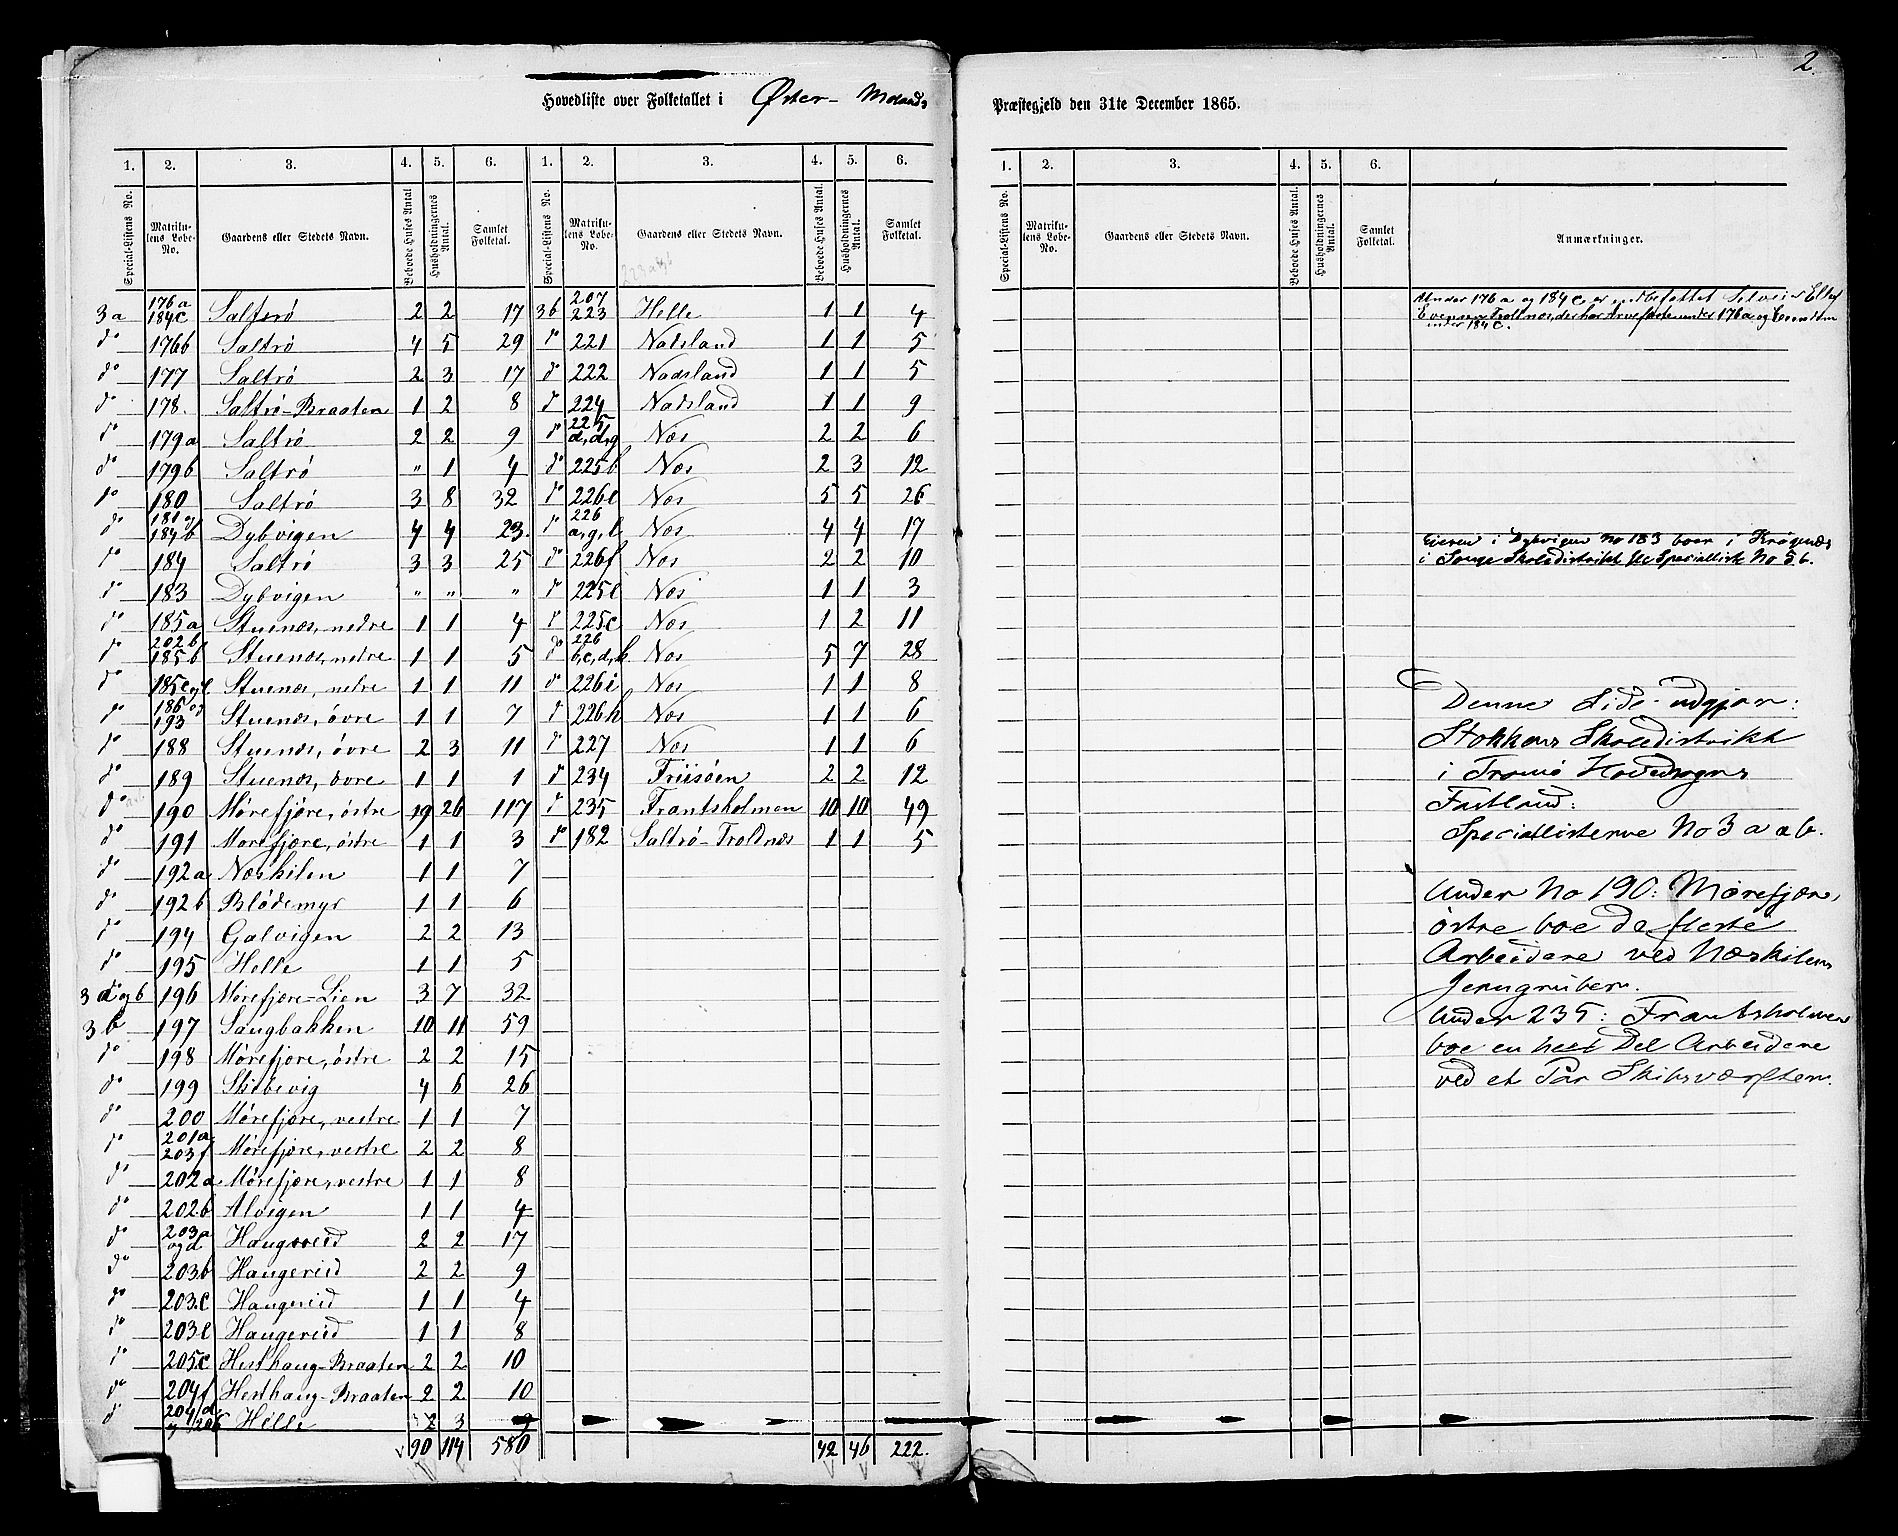 2.
Hovedliste over Folketallet i Øster- Molands Præstegjeld den 31te December 1865.
1. 2. 3. 4. 5. 6. 1. 2. 3. 4. 5. 6. 1. 2. 3. 4. 5. 6.
Special-Listens No. Matrikulens Løbe-No. Gaardens eller Stedets Navn. Beboede Huses Antal Husholdningernes Antal. Samlet Folketal. Special-Listens No. Matrikulens Løbe-No. Gaardens eller Stedets Navn. Beboede Huses Antal. Husholdningernes Antal. Samlet Folketal. Special-Listens No. Matrikulens Løbe-No. Gaardens eller Stedets Navn. Beboede Huses Antal. Husholdningernes Antal. Samlet Folketal. Anmærkninger.
3a 176a 184c Saltrø 2 2 17 3b 207 223 Helle 1 1 4
do 176b Saltrø 4 5 29 do 221 Natsland 1 1 5
do 177 Saltrø 2 3 17 do 222 Nadsland 1 1 5
do 178. Saltrø-Braaten 1 2 8 do 224 Nadsland 1 1 9
do 179a Saltrø 2 2 9 do 225 Næs 2 2 6
do 179b Saltrø " 1 4 do 225b Næs 2 3 12
do 180 Saltrø 3 8 32 do 226e Næs 5 5 26
do 181 og 184b Dybvigen 4 4 23. do 226 a,g,l Næs 4 4 17
do 184 Saltrø 3 3 25 do 226f Næs 2 2 10
do 183 Dybvigen " " " do 225e Næs 1 1 3
do 185a Stuenæs, nedre 1 1 4 do 225c Næs 1 2 11
do 202b 185b Stuenæs, nedre 1 1 5 do 226 b,c,d,k Næs 5 7 28
do 185c og e Stuenæs, nedre 1 1 11 do 226i Næs 1 1 8
do 186 og 193 Stuenæs, øvre 1 1 7 do 226h Næs 1 1 6
do 188 Stuenæs, øvre 2 3 11 do 227 Næs 1 1 6
do 189 Stuenæs, øvre 1 1 1 do 234 Friisøen 2 2 12
do 190 Mørefjære, østre 19 26 117 do 235 Frantsholmen 10 10 49
do 191 Mørefjære, østre 1 1 3 do 182 Saltrø-Troldnæs 1 1 5
do 192a Næskilen 1 1 7
do 192b Blødemyr 1 1 6
do 194 Galvigen 2 2 13
do 195 Helle 1 1 5
3a og b 196 Mørefjære-Lien 3 7 32
3b 197 Saugbakken 10 11 59
do 198 Mørefjære, østre 2 2 15
do 199 Skibevig 4 6 26
do 200 Mørefjære, vestre 1 1 7
do 201a 203f Mørefjære, vestre 2 2 8
do 202a Mørefjære, vestre 1 1 8
do 202b Alvigen 1 1 4
do 203a og d Haugereid 2 2 17
do 203b Haugereid 2 2 9
do 203c Haugereid 1 1 4
do 203e Haugereid 1 1 8
do 205c Hesthaug-Braaten 2 2 10
do 204f Hesthaug-Braaten 2 2 10
do 204d og 206 Helle 2 3
90 114 580 42 46 222.
Under 176a og 184c, er
Evensen Troldnæs, der har under 176a og
under 184c.
Eieren i Dybvigen No 183 boer i Krøgenæs
i Songe Skoledistrikt Specialliste No 5b.
Denne Side udgjør:
Stokkens Skoledistrikt
i Tromø Hovedsogns
Fastland:
Speciallisterne No 3 a & b.
Under No 190: Mørefjær,
østre boe de fleste
Arbeidere ved Næskilens
Jerngruber.
Under 235: Frantsholmen
boe en heel Del Arbeidere
ved et Par Skibsværfter.